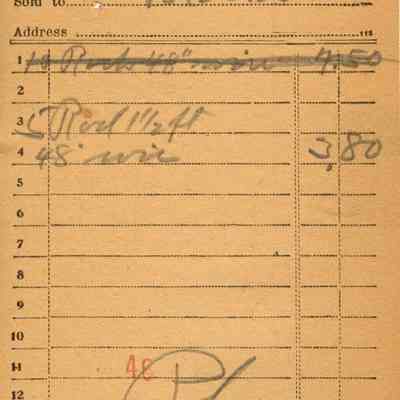 Sold to
Address
1 10 Rods 48" wire 7.50
2
3 5 Rod 1 1/2 ft
4 48" wire 3.80
5
6
7
8
9
10
11 48
12